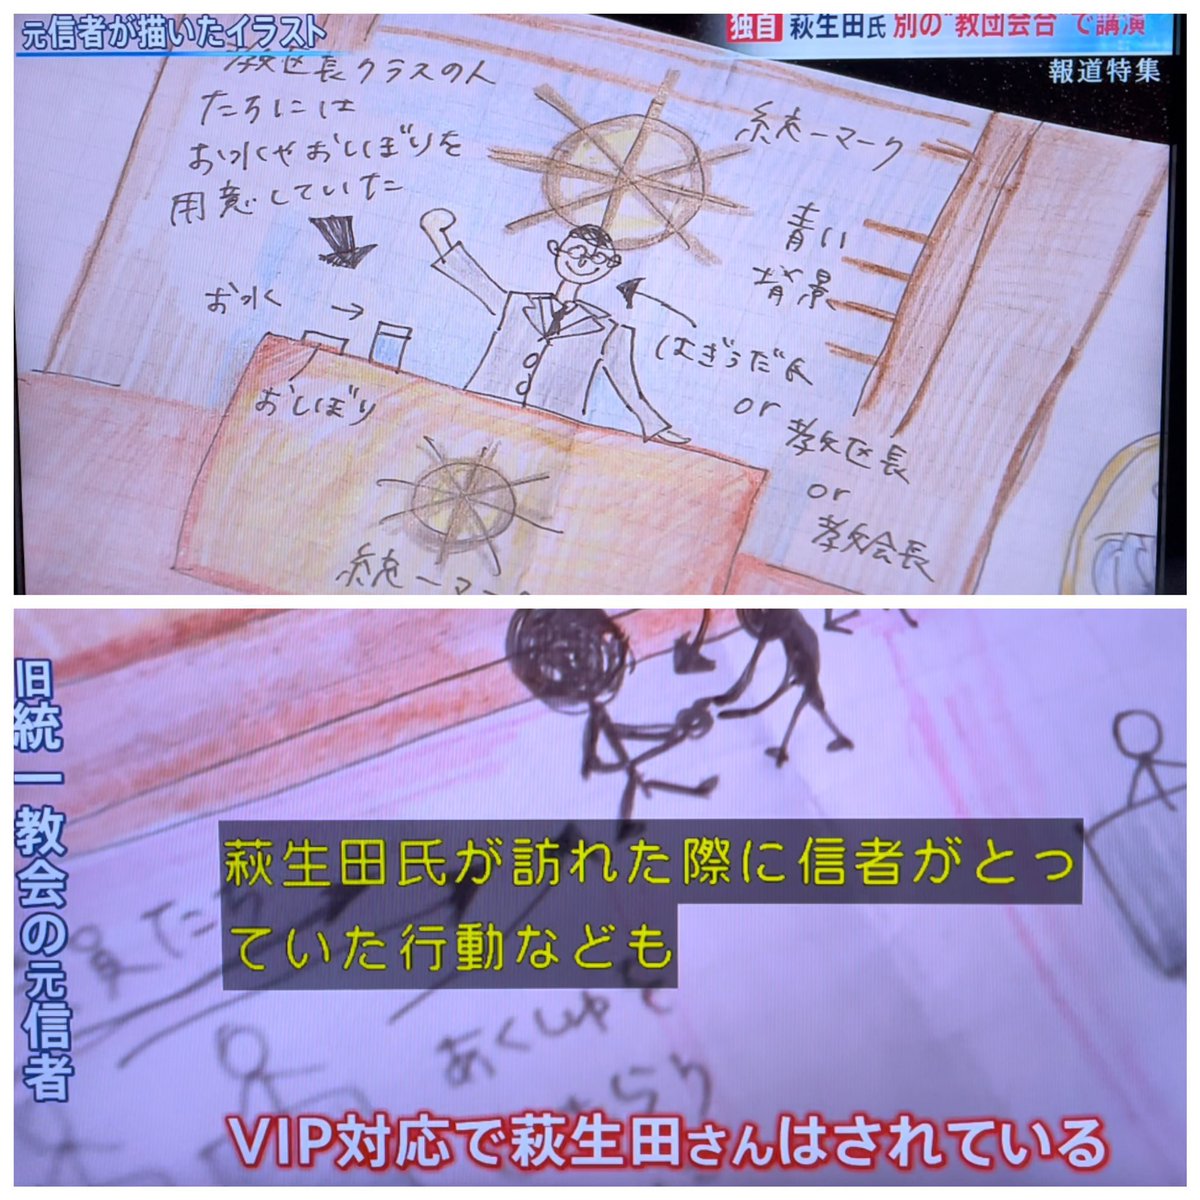 元信者が描いたイラスト
独自 萩生田氏 別の"教団会合"で講演
報道特集
教区長クラスの人
たちには
お水やおしぼりを
用意していた
統一マーク
青い
背景
お水 →
おしぼり
はぎうだ氏
or
教区長
or
教会長
統一マー
旧統一教会の元信者
萩生田氏が訪れた際に信者がとっ
ていた行動なども
員たち
あくしゅ
VIP対応で萩生田さんはされている